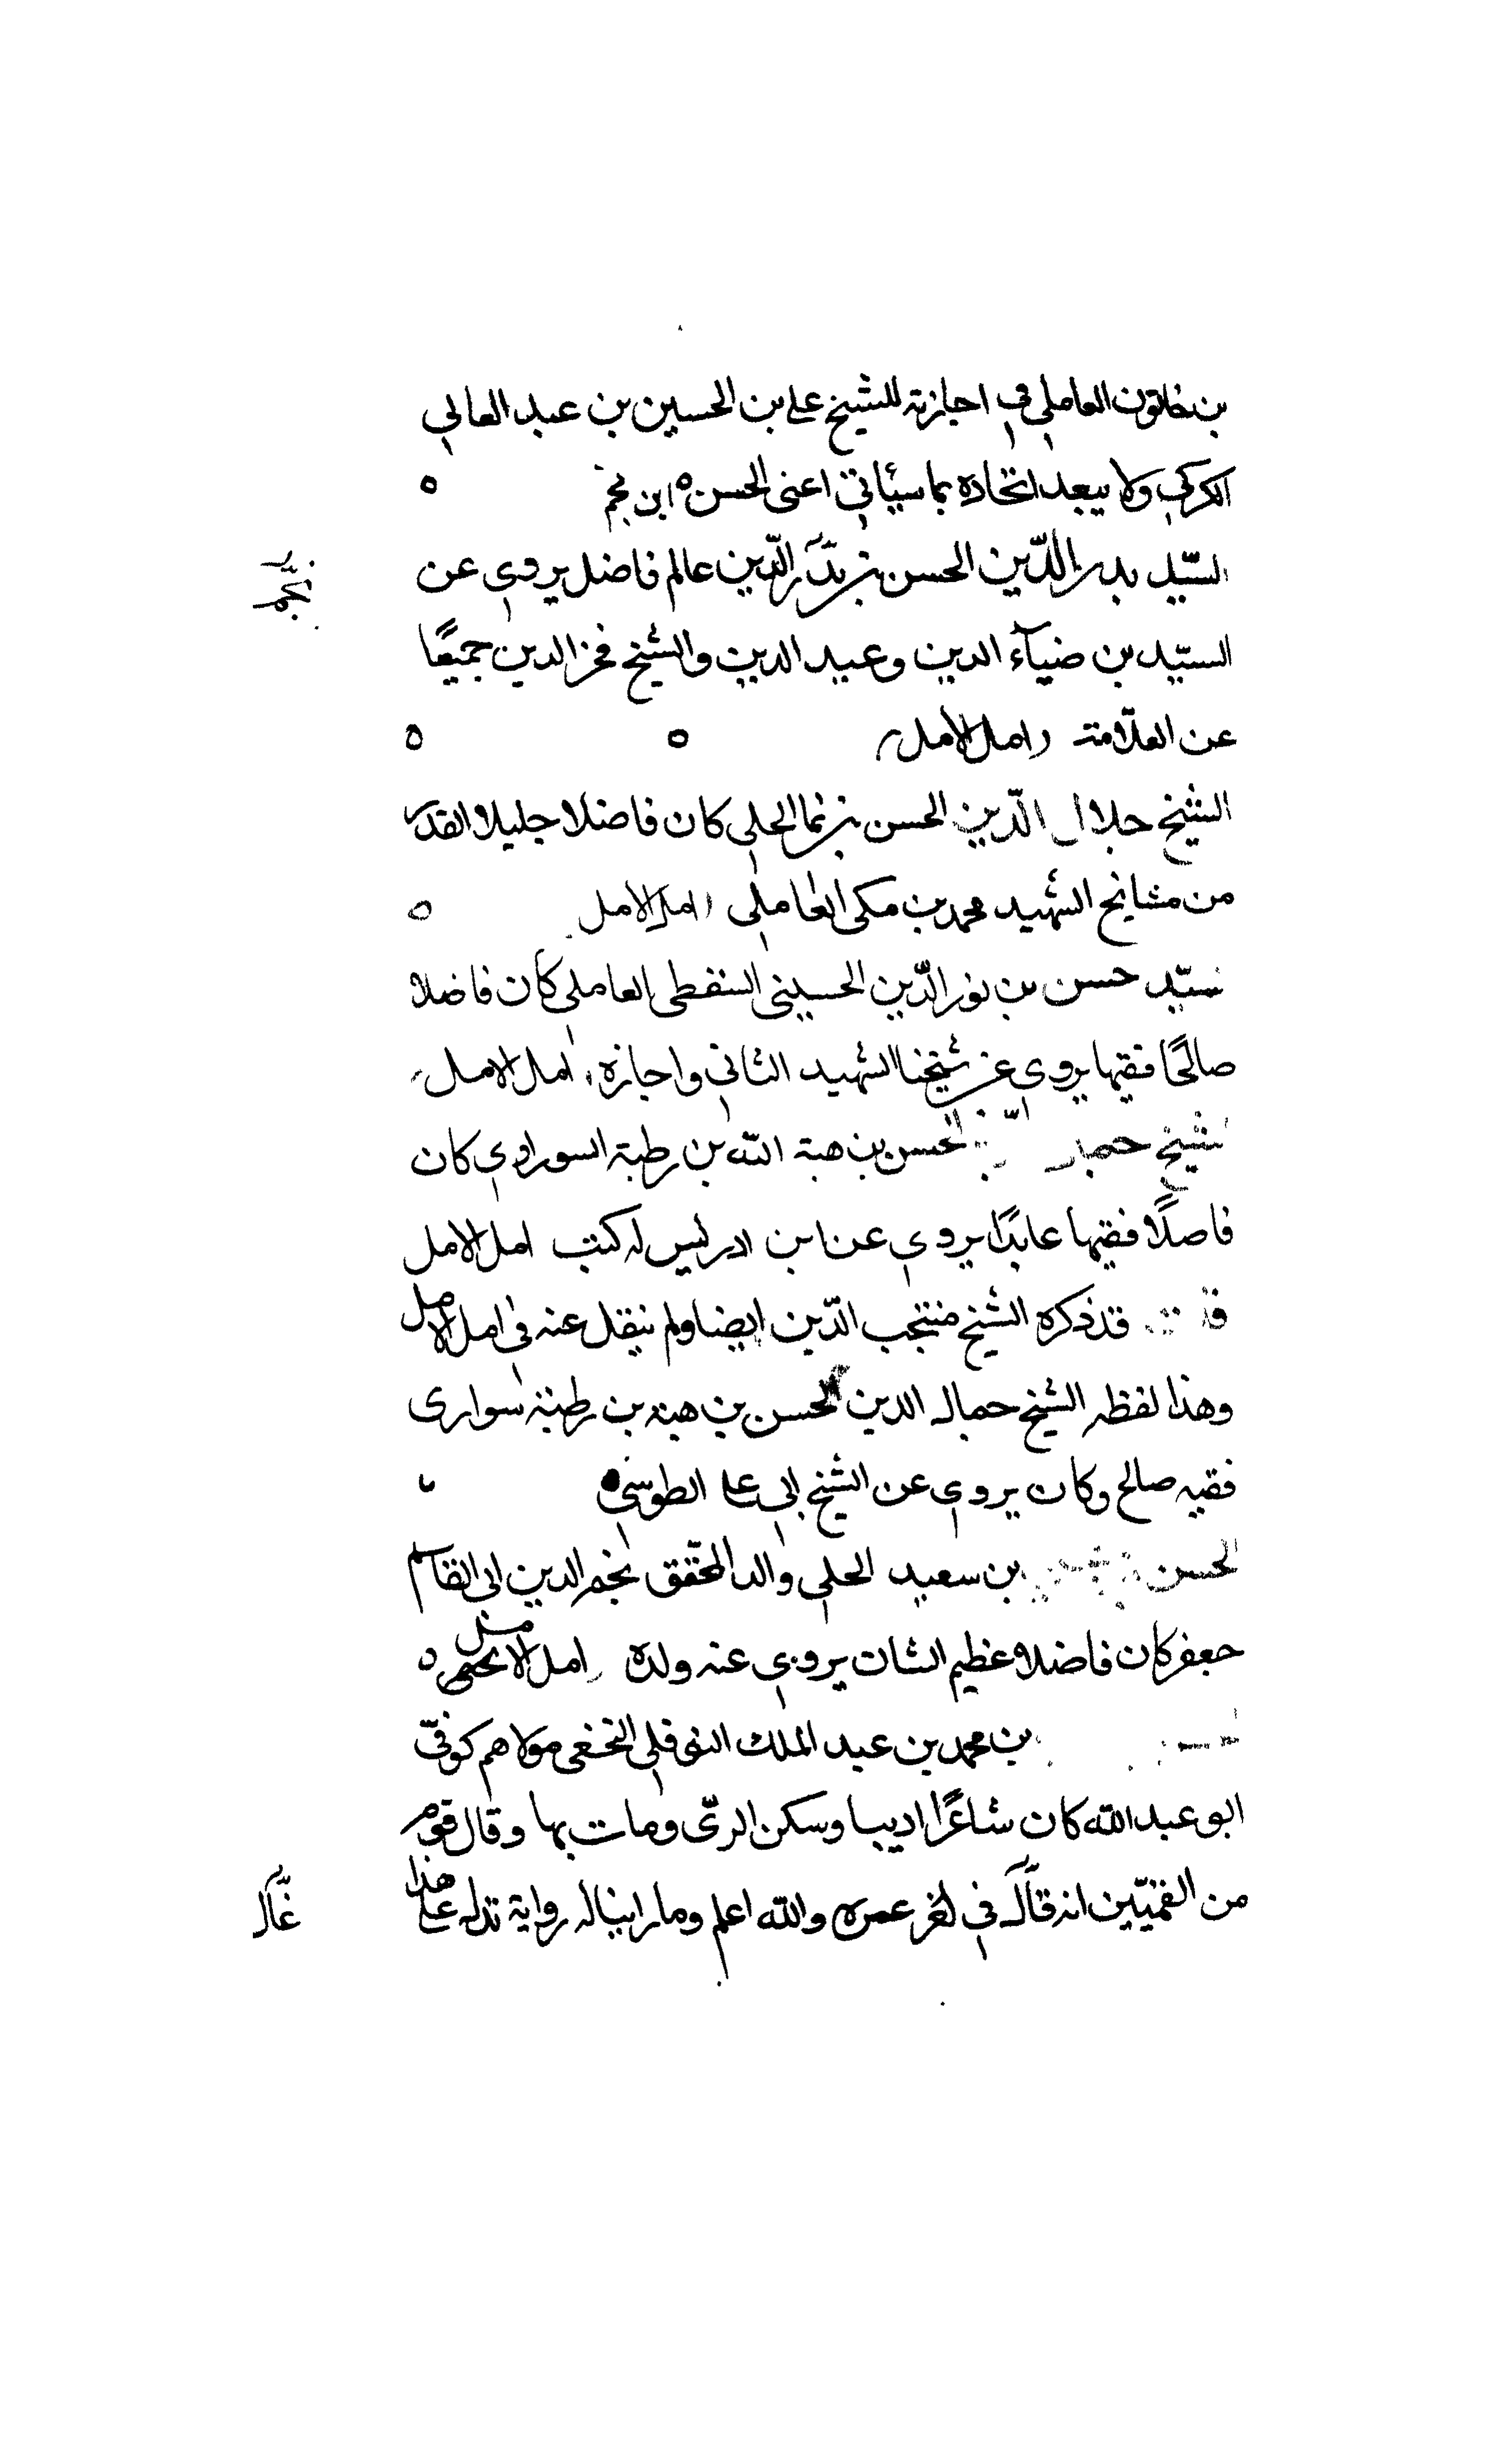 بن خاتون العاملي في اجازته للشيخ علي بن الحسين بن عبد العالي
الكركي ولا يبعد اتحاده بما سيأتي اعنى الحسن ابن نجم
السّيد بدر الدّين الحسن بن بدر الدّين عالم فاضل يروي عن
نجم
السيّد بن ضيآء الدين وعميد الدين والشيخ فخر الدين جميعًا
عن العلّامة امل الامل
الشيخ جلال الدّين الحسن بن نما الحلي كان فاضلا جليلا القدر
من مشايخ الشهيد محمد بن مكى العاملي امل الامل
سيّد حسن بن نور الدّين الحسيني السقطى العاملي كان فاضلا
صالحًا فقيها يروي عن شيخنا الشهيد الثاني واجازه امل الامل
لشيخ جمال الحسن بن هبة الله بن رطبة السوراوي كان
فاضلًا فقيها عابدًا يروي عن ابن ادريس له كتب امل الامل
قد ذكره الشيخ منتجب الدّين ايضا ولم ينقل عنه في امل الامل
وهذا لفظه الشيخ جمال الدين الحسن بن هبه بن رطبة سوارى
فقيه صالح وكان يروي عن الشيخ ابي علي الطوسي
الحسن بن سعيد الحلي والد المحقق نجم الدين ابى القاسم
جعفر كان فاضلا عظيم الشان يروي عنه ولده امل الامل
بن محمد بن عبد الملك النوفلي النخعى مولاهم كوفيّ
ابو عبد الله كان شاعرًا اديبا وسكن الرىّ ومات بها وقال قوم
من القميّين انه غلا في اخر عمره والله اعلم وما راينا له رواية تدل على هذا